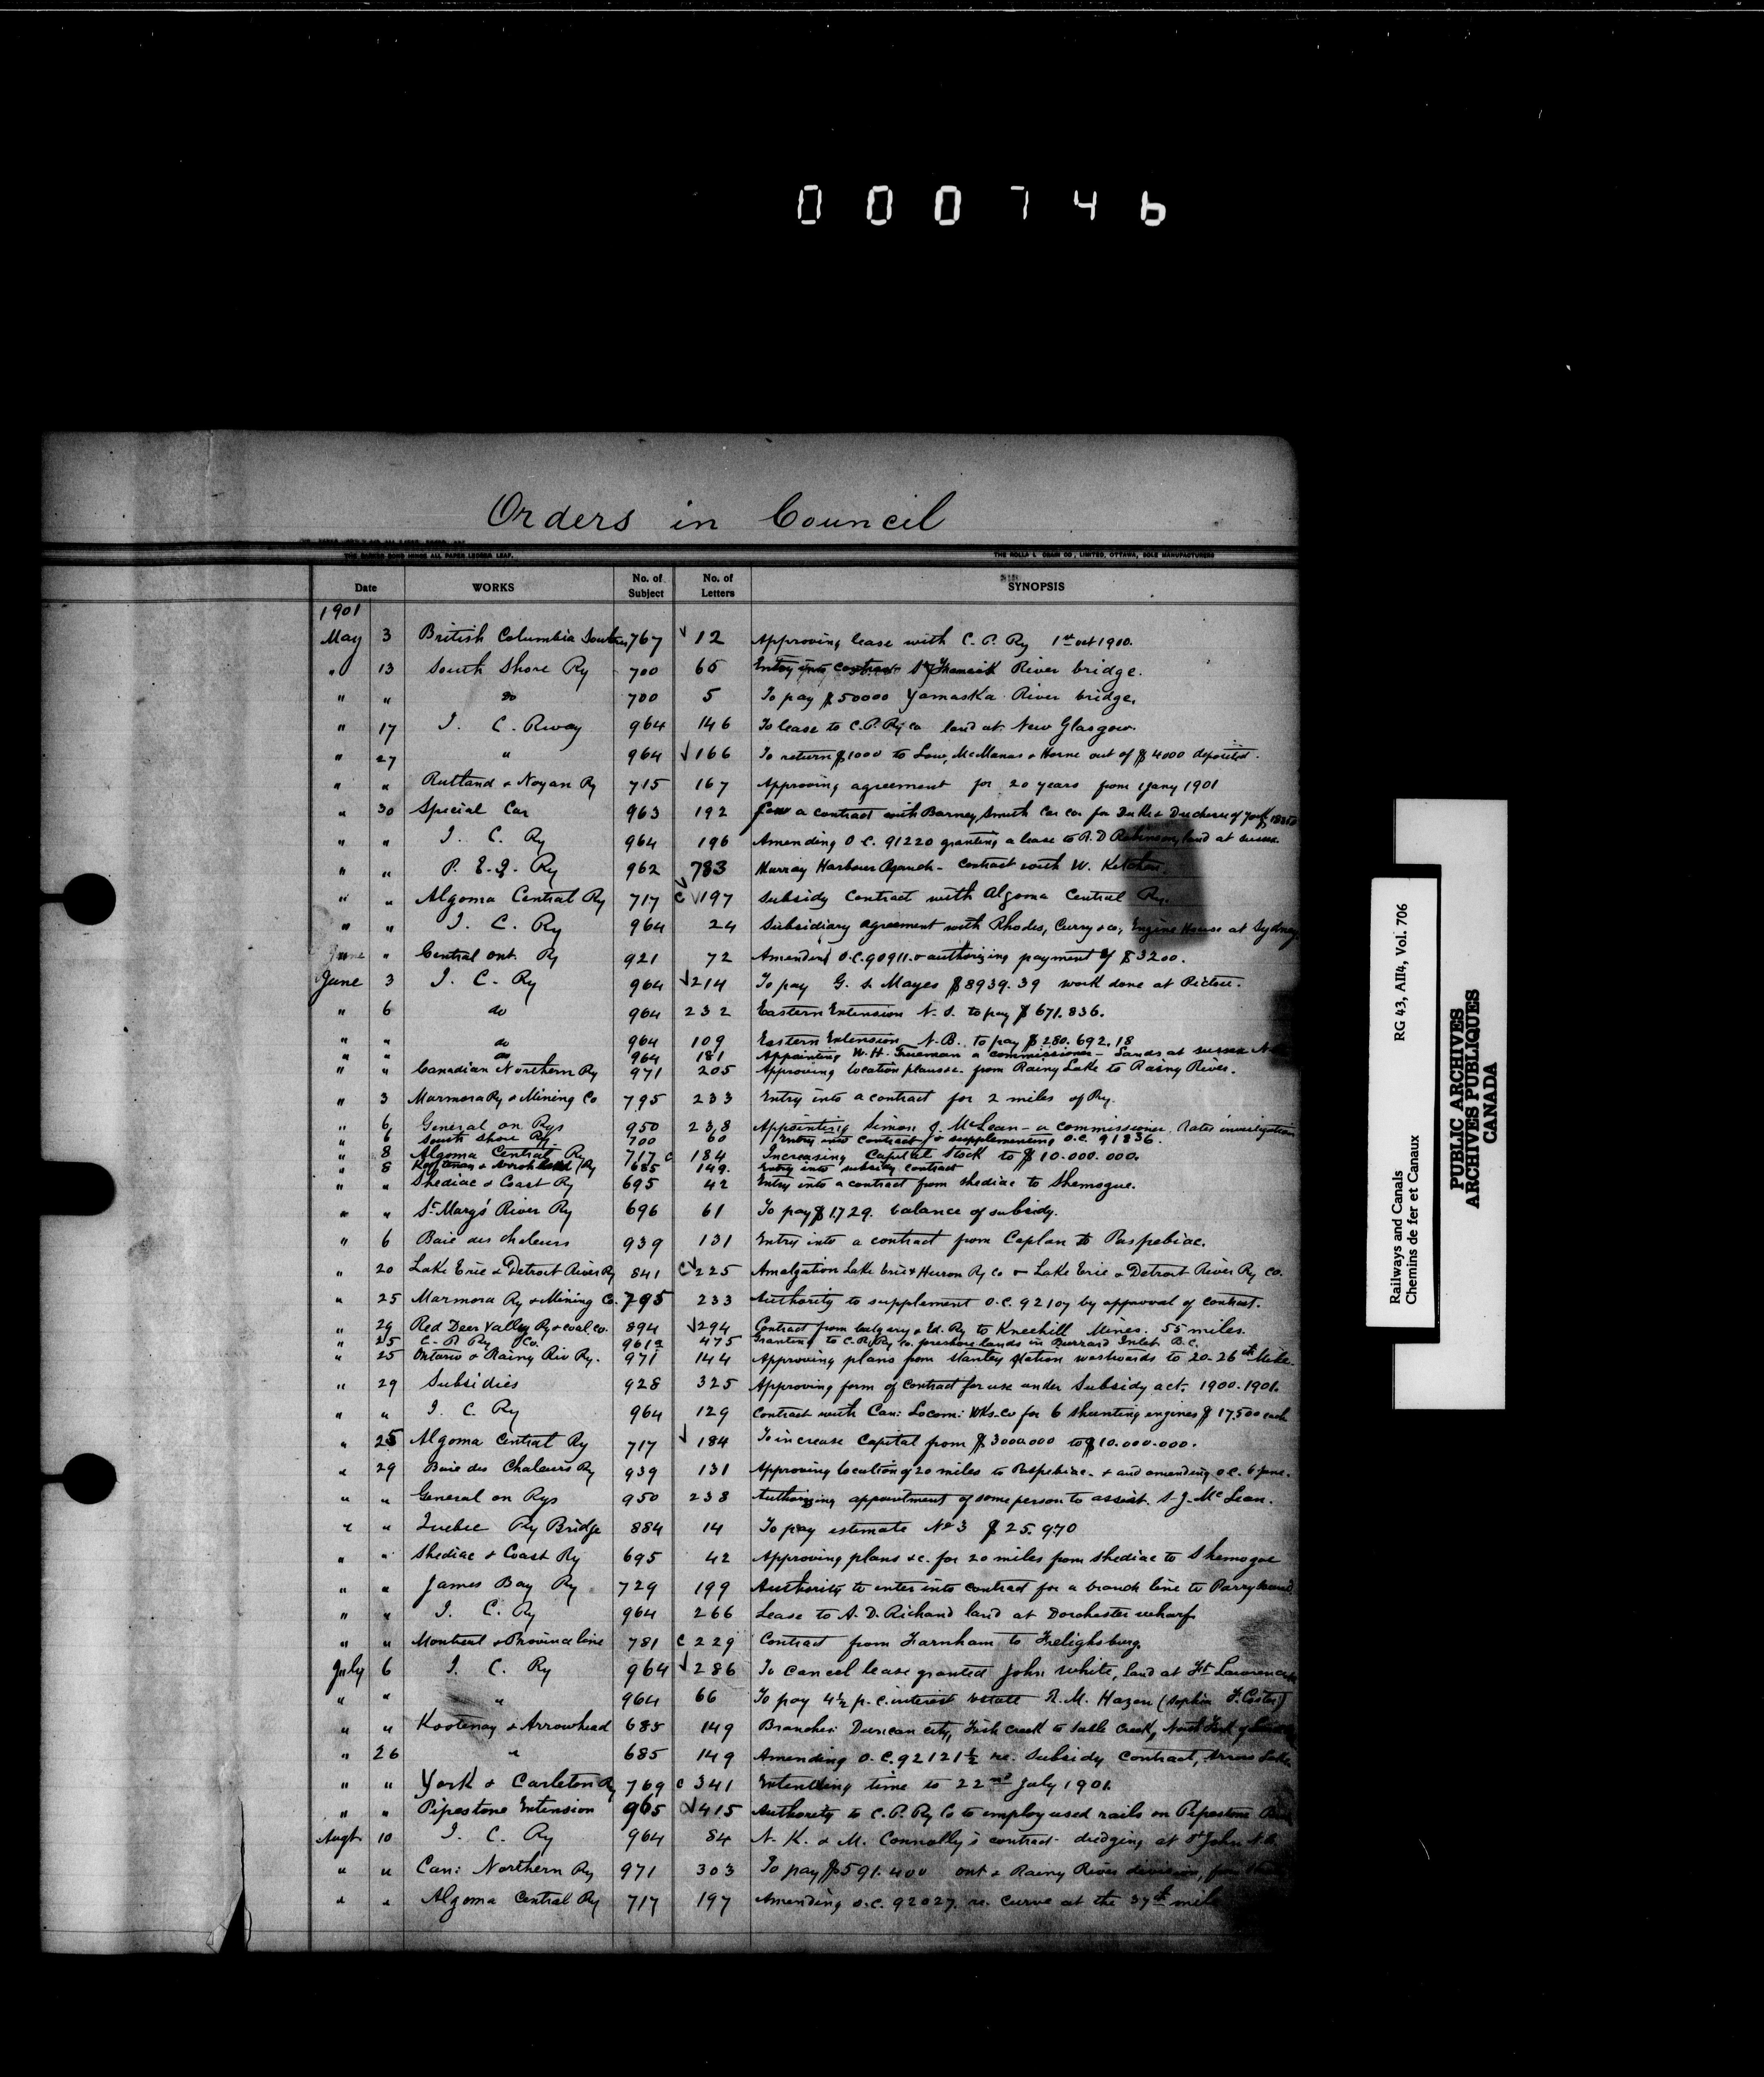 000746
Orders in Council
THE ROLLA L. CRAIN CO., LIMITED, OTTAWA, SOLE MANUFACTURERS
Date WORKS No. of Subject No. of Letters SYNOPSIS
1901
May 3 British Columbia Southern 767 √ 12 Approving lease with C. P. Ry 1st oct 1900.
" 13 South Shore Ry 700 65 Entry into contract River bridge.
" " do 700 5 To pay $50000 Yamaska River bridge.
" 17 I. C. Rway 964 146 To lease to C.P. Ry Co land at New Glasgow.
" 27 " 964 √166 To return $1000 to Low, McManas & Horne out of $4000 deposited.
" " Rutland & Noyan Ry 715 167 Approving agreement for 20 years from 1 Jany 1901
" 30 Special Car 963 192 For a contract with Barney, Smith Car Co for Duke & Duchess of York
" " I. C. Ry 964 196 Amending O C. 91220 granting a lease to A. D Robinson, land at Sussex
" " P. E. I. Ry 962 783 Murray Harbour Branch - Contract with W. Kitchen.
" " Algoma Central Ry 717 c √197 Subsidy Contract with Algoma Central Ry.
" " I. C. Ry 964 24 Subsidiary agreement with Rhodes, Curry & co, Engine House at Sydney
June " Central Ont. Ry 921 72 Amending O.C. 90911. & authorizing payment of $3200.
June 3 I. C. Ry 964 √214 To pay G. S. Mayes $8939.39 work done at Pictou.
" 6 do 964 232 Eastern Extension N. S. to pay $671.836.
" " do 964 109 Eastern Extension N.B. to pay $280.692.18
" " do 964 181 Appointing W.H. Trueman a commissioner - Lands at Sussex N.B.
" " Canadian Northern Ry 971 205 Approving location plans &c. from Rainy Lake to Rainy River.
" 3 Marmora Ry & Mining Co 795 233 Entry into a contract for 2 miles of Ry.
" 6 General on Rys 950 238 Appointing Simon J. McLean - a commissioner. Rates investigation
" 6 South Shore Ry. 700 60 Entry into contract & supplementing O.C. 91836.
" 8 Algoma Central Ry 717 c 184 Increasing Capital Stock to $10.000.000.
" 8 Kootenay & Arrowhead Ry 685 149. Entry into subsidy contract
" " Shediac & Coast Ry 695 42 Entry into a contract from Shediac to Shemogue.
" " St. Mary's River Ry 696 61 To pay $1729. balance of subsidy.
" 6 Baie des Chaleurs 939 131 Entry into a contract from Caplan to Paspebiac.
" 20 Lake Erie & Detroit River Ry 841 c√225 Amalgation Lake Erie & Huron Ry Co & Lake Erie & Detroit River Ry Co.
" 25 Marmora Ry & Mining Co. 795 233 Authority to supplement O.C. 92107 by approval of contract.
" 29 Red Deer Valley Ry & Coal Co. 894 √294 Contract from Calgary & Ed. Ry to Kneehill Mines. 55 miles.
" 25 C. P. Ry Co. 961a 475 Granting to C.P. Ry Co. foreshore lands in Burrard Inlet B.C.
" 25 Ontario & Rainy Riv Ry. 971 144 Approving plans from Stanley Station westwards to 20-26th Mile.
" 29 Subsidies 928 325 Approving form of contract for use under Subsidy act. 1900-1901.
" " I. C. Ry 964 129 Contract with Can: Locom: Wks. Co for 6 shunting engines $17,500 each
" 25 Algoma Central Ry 717 √ 184 To increase Capital from $3000.000 to $10.000.000.
" 29 Baie des Chaleurs Ry 939 131 Approving location of 20 miles to Paspebiac. & and amending O.C. 6 June.
" " General on Rys 950 238 Authorizing appointment of some person to assist. S. J. McLean.
" " Quebec Ry Bridge 884 14 To pay estimate No 3 $25.970
" " Shediac & Coast Ry 695 42 Approving plans &c. for 20 miles from Shediac to Shemogue
" " James Bay Ry 729 199 Authority to enter into contract for a branch line to Parry Sound
" " I. C. Ry 964 266 Lease to A. D. Richard land at Dorchester wharf
" " Montreal & Province line 781 c 229 Contract from Farnham to Frelighsburg.
July 6 I. C. Ry 964 √286 To cancel lease granted John White, land at
" " " 964 66 To pay 4½ p.c. interest estate R. M. Hazen (Sophia F. Coster)
" " Kootenay & Arrowhead 685 149 Branches: Duncan City, Fish Creek to Sable Creek, North Fork of
" 26 " 685 149 Amending O.C. 92121½ re. Subsidy Contract, Arrow Lake
" " York & Carleton Ry 769 c 341 Extending time to 22nd July 1901.
" " Pipestone Extension 965 c√415 Authority to C.P. Ry Co to employ used rails on Pipestone
Augt 10 I. C. Ry 964 84 N. K. & M. Connolly's contract - dredging at St John N.B.
" " Can: Northern Ry 971 303 To pay $591.400 Ont & Rainy River division,
" " Algoma Central Ry 717 197 Amending O.C. 92027. re. curve at the 37th mile
Railways and Canals RG 43, AII4, Vol. 706
Chemins de fer et Canaux
PUBLIC ARCHIVES
ARCHIVES PUBLIQUES
CANADA